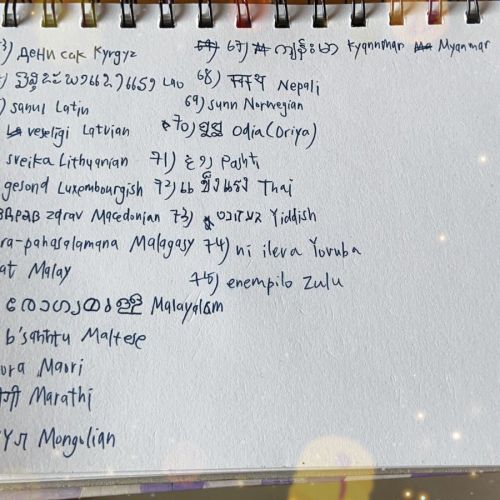 3) Дени сак Kyrgyz
Lao
sanul Latin
veseligi Latvian
sveika Lithuanian
gesond Luxembourgish
здрав zdrav Macedonian
ra-pahasalamana Malagasy
at Malay
Malayalam
b'saħħtu Maltese
ora Maori
Marathi
Mongolian
67) ကျန်းမာ Kyannmar Myanmar
68) स्वस्थ Nepali
69) sunn Norwegian
70) ସୁସ୍ଥ Odia (Oriya)
71) Pashti
72) แข็งแรง Thai
73) Yiddish
74) ni ilera Yoruba
75) enempilo Zulu